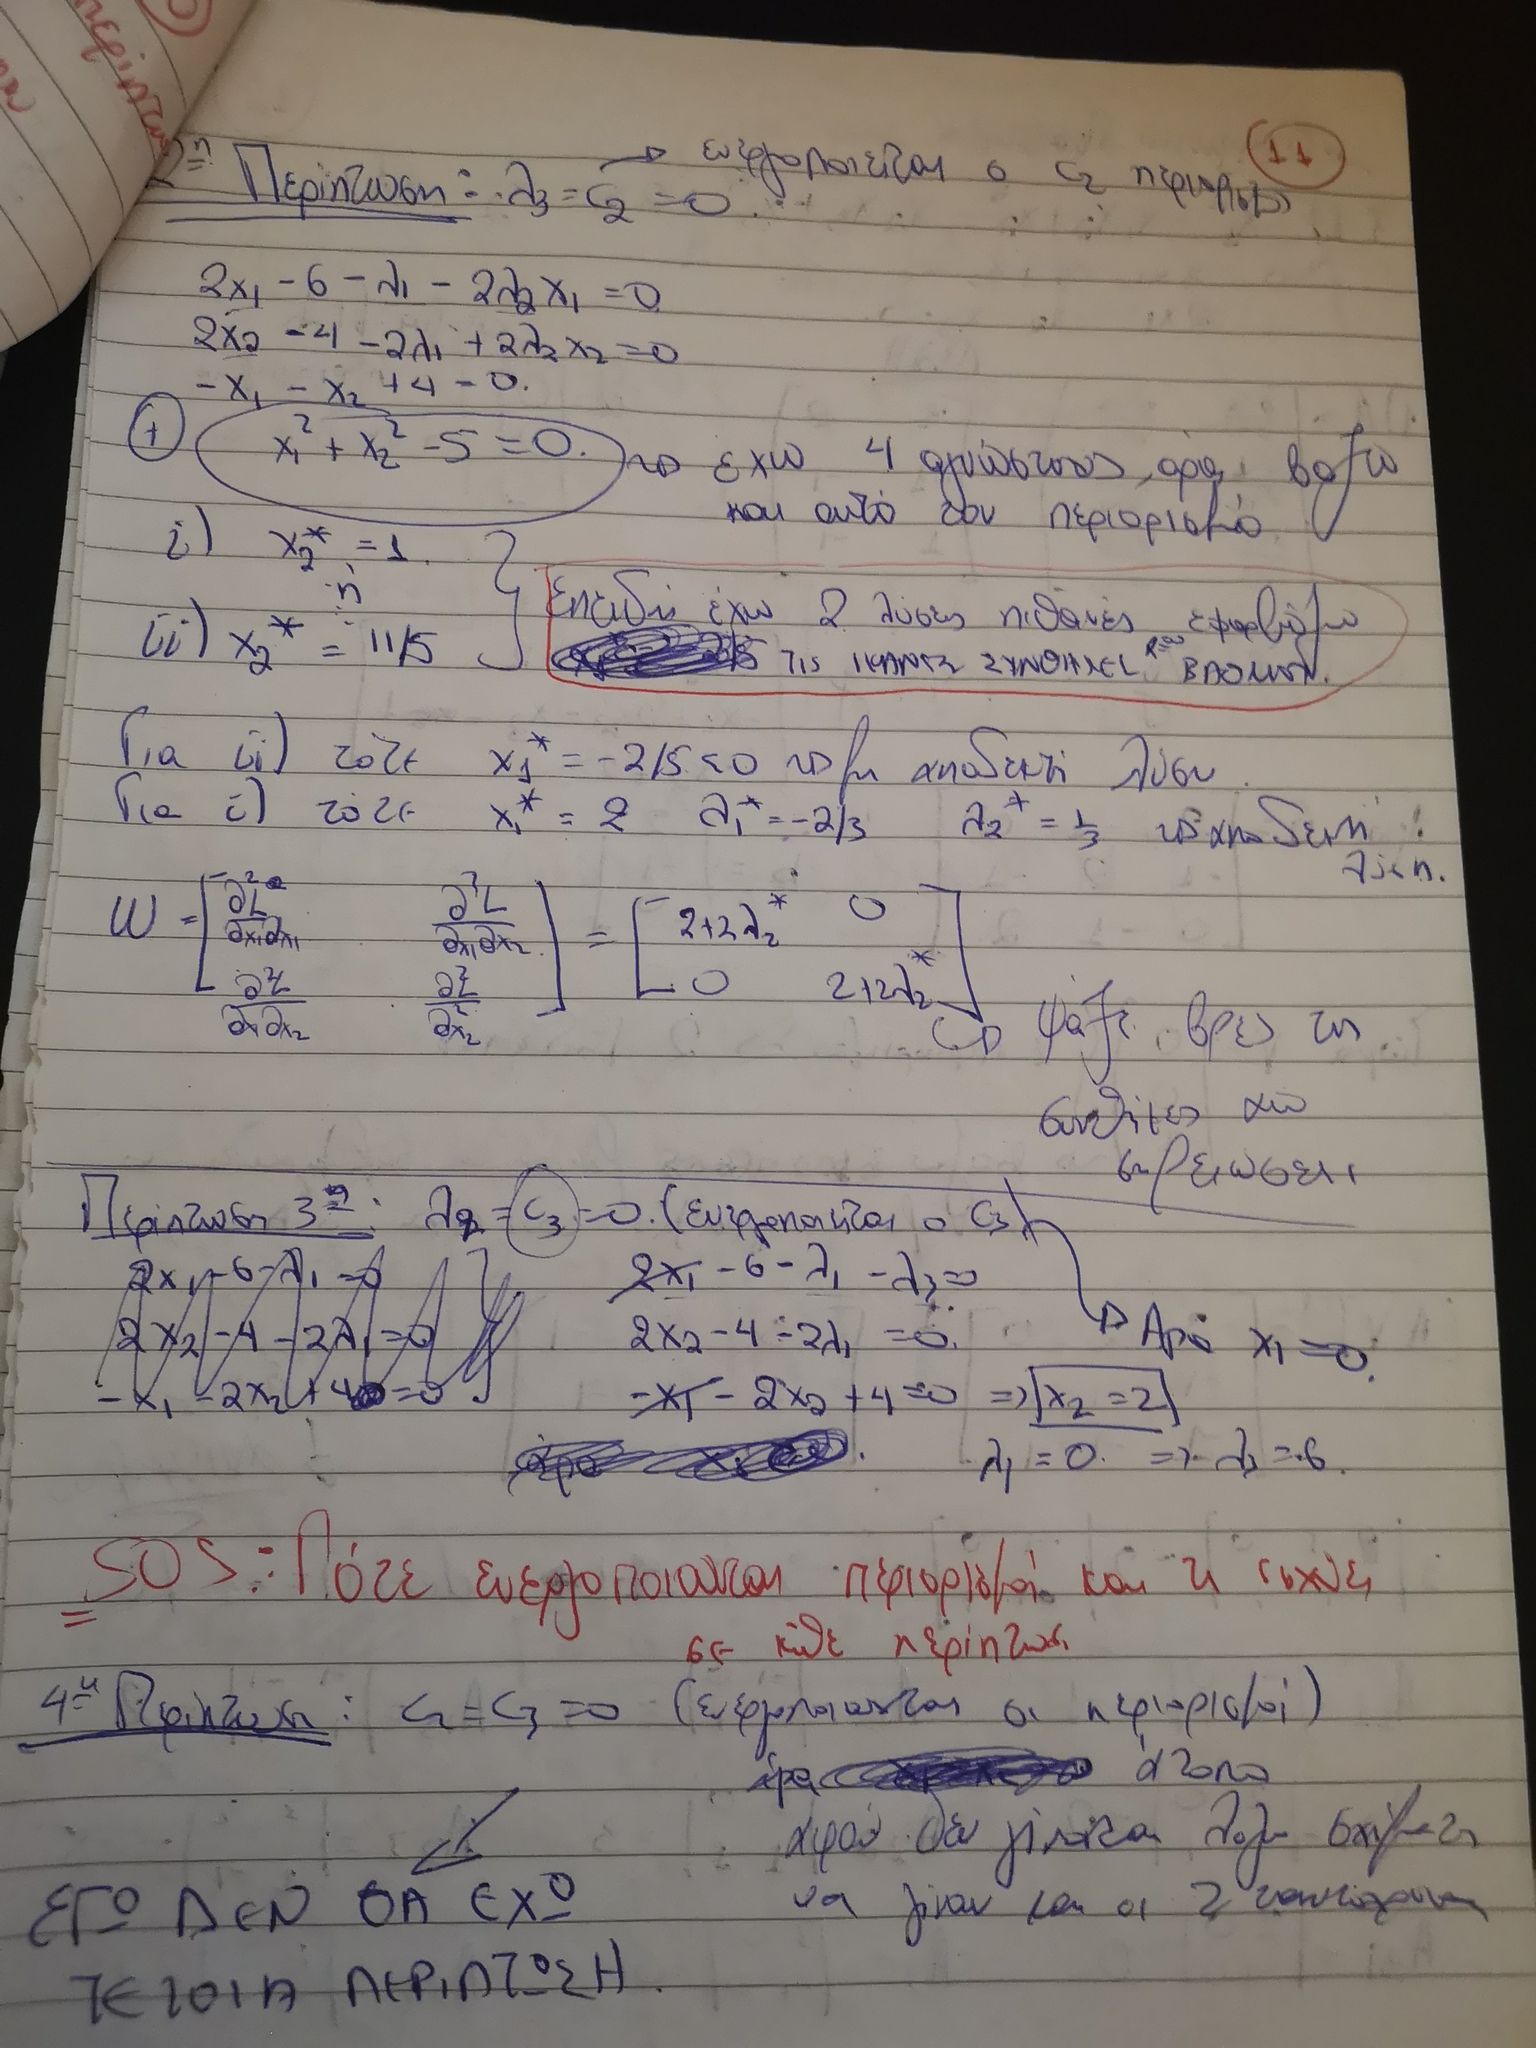 11
2η Περίπτωση: λ3 = C2 = 0. → ενεργοποιείται ο C2 περιορισμός
2x1 - 6 - λ1 - 2λ2x1 = 0
2x2 - 4 - 2λ1 + 2λ2x2 = 0
-x1 - x2 + 4 = 0.
+ x1² + x2² - 5 = 0. → έχω 4 αγνώστους, άρα βάζω
και αυτό τον περιορισμό
i) x2* = 1.
ή
ii) x2* = 11/5
Επειδή έχω 2 λύσεις πιθανές εφαρμόζω
τις ΙΚΑΝΕΣ ΣΥΝΘΗΚΕΣ ΒΑΘΜΟΥ.
Για ii) τότε x1* = -2/5 < 0 → μη αποδεκτή λύση.
Για i) τότε x1* = 2 λ1* = -2/3 λ2* = 1/3 → αποδεκτή
λύση.
W = [∂²L/∂x1∂x1 ∂²L/∂x1∂x2] = [2+2λ2* 0]
[∂²L/∂x1∂x2 ∂²L/∂x2²] [0 2+2λ2*]
→ ψάξε βρες τις
συνθήκες από
σημειώσεις
Περίπτωση 3η: λ2 = C3 = 0. (ενεργοποιείται ο C3) → Άρα x1 = 0.
2x1 - 6 - λ1 = 0
2x2 - 4 - 2λ1 = 0
-x1 - 2x2 + 4 = 0
2x1 - 6 - λ1 - λ3 = 0
2x2 - 4 - 2λ1 = 0.
-x1 - 2x2 + 4 = 0 => x2 = 2
λ1 = 0. => λ3 = -6.
SOS: Πότε ενεργοποιούνται περιορισμοί και τι ισχύει
σε κάθε περίπτωση
4η Περίπτωση: C2 = C3 = 0 (ενεργοποιούνται οι περιορισμοί)
άρα άτοπο
αφού δεν γίνεται λόγω σχήματος
να γίνουν και οι 2 ταυτόχρονα
ΕΓΩ ΔΕΝ ΘΑ ΕΧΩ
ΤΕΤΟΙΑ ΠΕΡΙΠΤΩΣΗ.